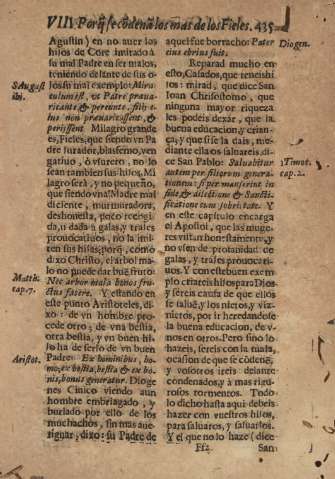 VIII. Porq̃ se cōdenā los mas de los Fieles. 435
Agustin) en no auer los
hijos de Core imitado à
su mal Padre en ser malos,
teniendo delante de sus o-
jos su mal exemplo: Mira-
S. Augus
ibi.
culum est, ex Patre praua-
ricante & pereunte, filij e-
ius non prauaricassent, &
perijssent. Milagro grande
es, Fieles, que siendo vn Pa-
dre jurador, blasfemo, ven-
gatiuo, ò vsurero, no lo
sean tambien sus hijos. Mi
lagro serà, y no pequeño,
que siendo vna Madre mal
diciente, murmuradora,
deshonesta, poco recogi-
da, ù dada à galas, y trajes
prouocatiuos, no la imi-
ten sus hijas; porq̃, como
dixo Christo, el arbol ma-
lo no puede dar buē fruto:
Matth.
cap. 7.
Nec arbor mala bonos fru-
ctus facere. Y estando en
este punto Aristoteles, di-
xo: de vn hombre pro-
cede otro; de vna bestia,
otra bestia, y vn buen hi-
jo ha de ser lo de vn buen
Aristot.
Padre: Ex hominibus, ho-
mo; ex bestia, bestia & ex bo-
nis, bonus generatur. Dioge
nes Cinico viendo aun
hombre embriagado, y
burlado por ello de los
muchachos, sin mas aue-
riguar, dixo: su Padre de
aqueste fue borracho: Pater
Diogen.
eius ebrius fuit.
Reparad mucho en
esto, Casados, que teneis hi
jos: mirad, que dize San
Iuan Chrisostomo, que
ninguna mayor riqueza
les podeis dexar, que la
buena educacion, y crian-
ça; y que si se la dais, me-
diante ella os saluareis, di-
ze San Pablo: Saluabitur
1. Timot.
cap. 2.
autem per filiorum genera-
tionem: si permanserint in
fide, & dilectione & sancti-
ficatione cum sobrietate. Y
en este capitulo encarga
el Apostol, que las muge-
res viuan honestamente, y
no vsen de profanidad, de
galas, y trajes prouocati-
uos. Y con este buen exem
plo criareis hijos para Dios
y sereis causa de que ellos
se salue, y los nietos, y vis-
nietos, por ir heredandose
la buena educacion, de v-
nos en otros. Pero si no lo
hazeis, sereis con la mala,
ocasion de que se codenē,
y vosotros ireis delante
condenados, y à mas rigu-
rosos tormentos. Todo
lo dicho hasta aqui debeis
hazer con vuestros hijos,
para saluaros, y saluarlos.
Y el que no lo haze (dice
Ff2 San